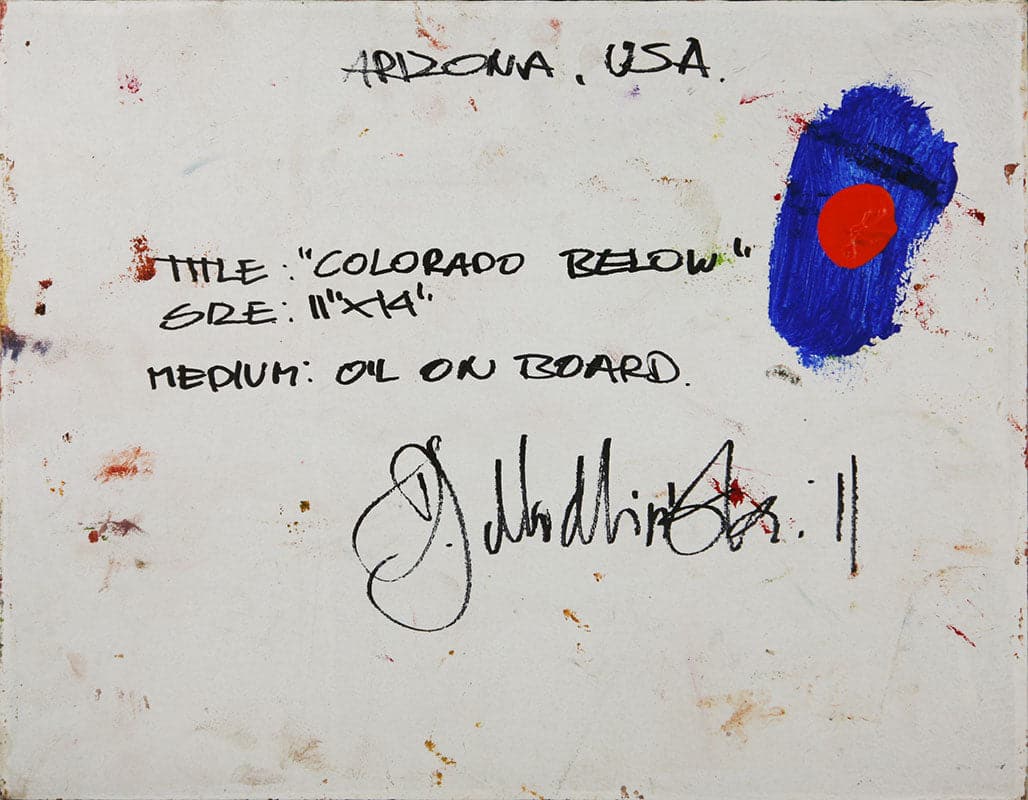 ARIZONA, USA.
TITLE: "COLORADO BELOW"
SIZE: 11"X14"
MEDIUM: OIL ON BOARD.
11